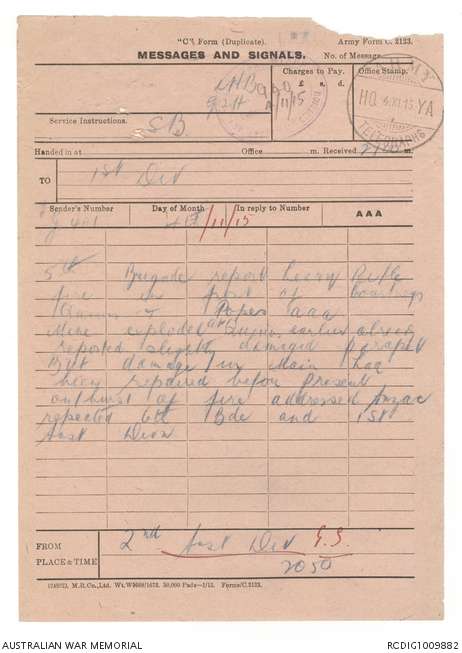 "C" Form (Duplicate). Army Form C. 2123.
MESSAGES AND SIGNALS. No. of Message
Charges to Pay. Office Stamp.
£ s. d.
4/11/15
ARMY
HQ 4.XI.15 YA
TELEGRAPHS
Service Instructions. SB
Handed in at Office m. Received m.
TO 1st Div
Sender's Number Day of Month In reply to Number AAA
4th/11/15
5th Brigade report heavy Rifle
fire in front of
& Popes aaa
Mine exploded earlier already
reported slightly damaged parapet
But damage in main has
been repaired before present
outburst of fire addressed Anzac
repeated 6th Bde and 1st
Aust Divn
FROM 2nd Aust Div G.S.
PLACE & TIME 2050
M.R.Co.,Ltd. 50,000 Pads—1/15. Forms/C.2123.
AUSTRALIAN WAR MEMORIAL RCDIG1009882